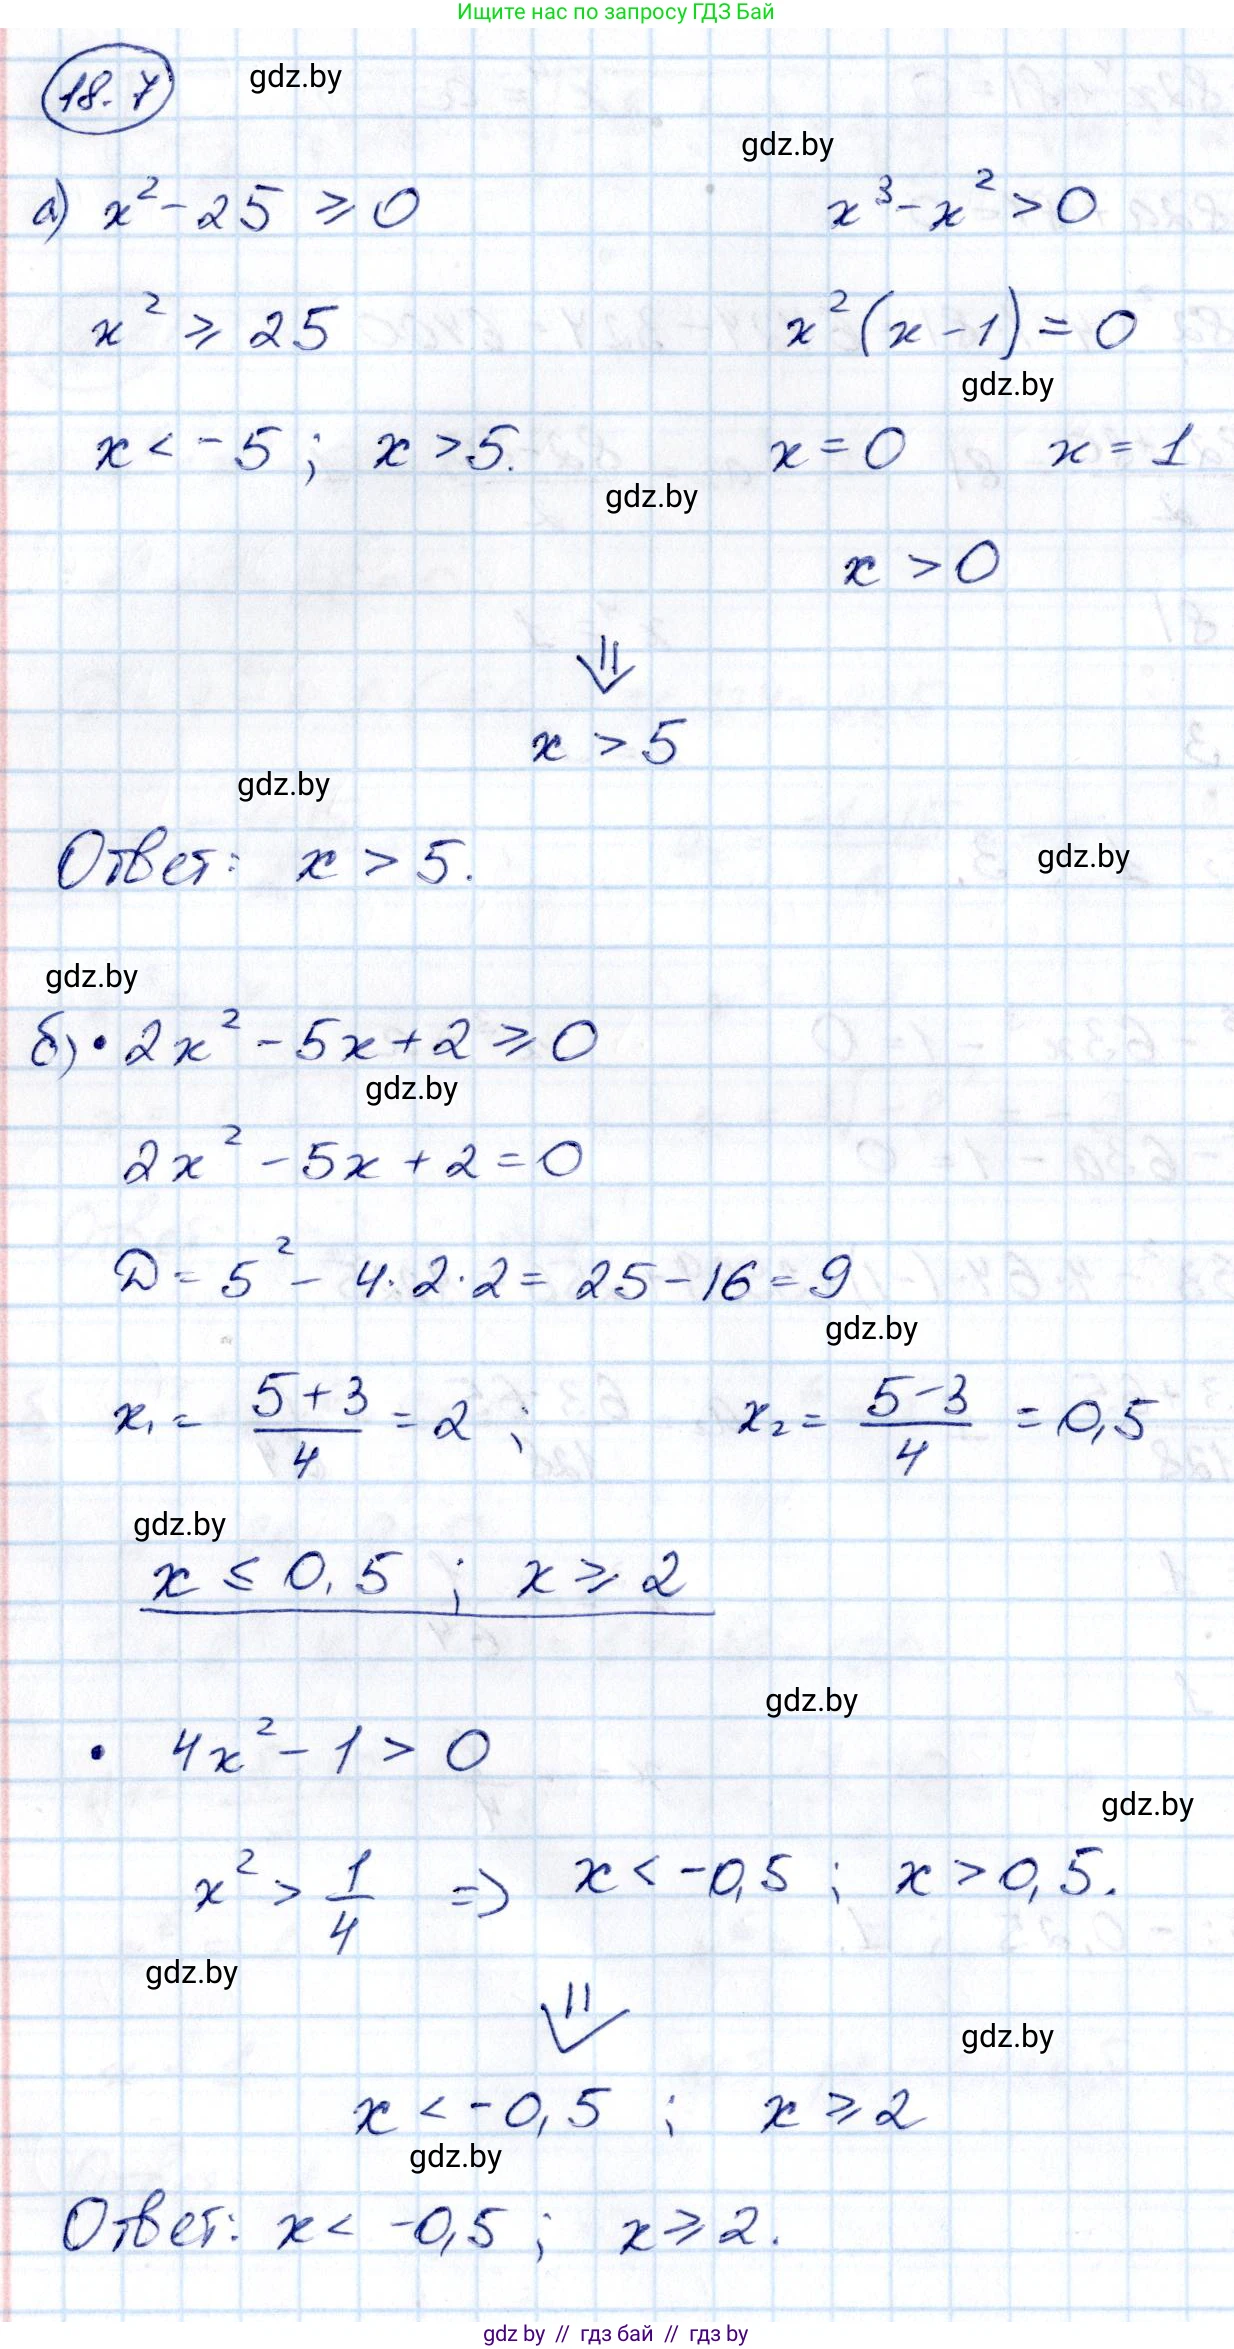 Ищите нас по запросу ГДЗ Бай
18.7 gdz.by
gdz.by
а) x² - 25 ⩾ 0 x³ - x² > 0
x² ⩾ 25 x²(x - 1) = 0
gdz.by
x < -5 ; x > 5. x = 0 x = 1
gdz.by
x > 0
⇓
x > 5
gdz.by
Ответ: x > 5. gdz.by
gdz.by
б) • 2x² - 5x + 2 ⩾ 0
gdz.by
2x² - 5x + 2 = 0
D = 5² - 4·2·2 = 25 - 16 = 9
gdz.by
x₁ = (5+3)/4 = 2 ; x₂ = (5-3)/4 = 0,5
gdz.by
x ≤ 0,5 ; x ⩾ 2
gdz.by
• 4x² - 1 > 0
gdz.by
x² > 1/4 => x < -0,5 ; x > 0,5.
gdz.by
⇓
gdz.by
x < -0,5 ; x ⩾ 2
gdz.by
Ответ: x < -0,5 ; x ⩾ 2.
gdz by // гдз бай // гдз by